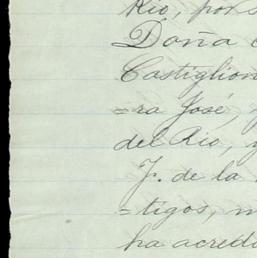 Rio, por
Doña
Castiglion
=ra José,
del Rio, y
J. de la
=tigos, m
ha acredi